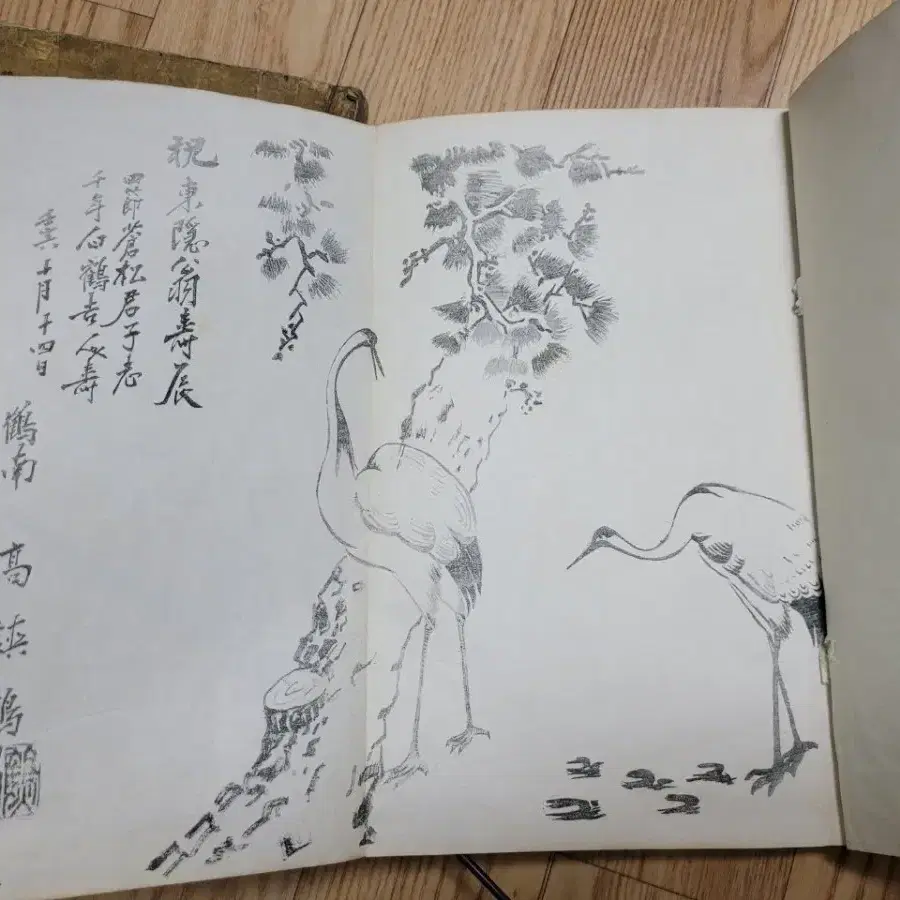 祝東隱翁壽辰
四節蒼松君子志
千年白鶴吉人壽
十月十四日
鶴南 高鎭